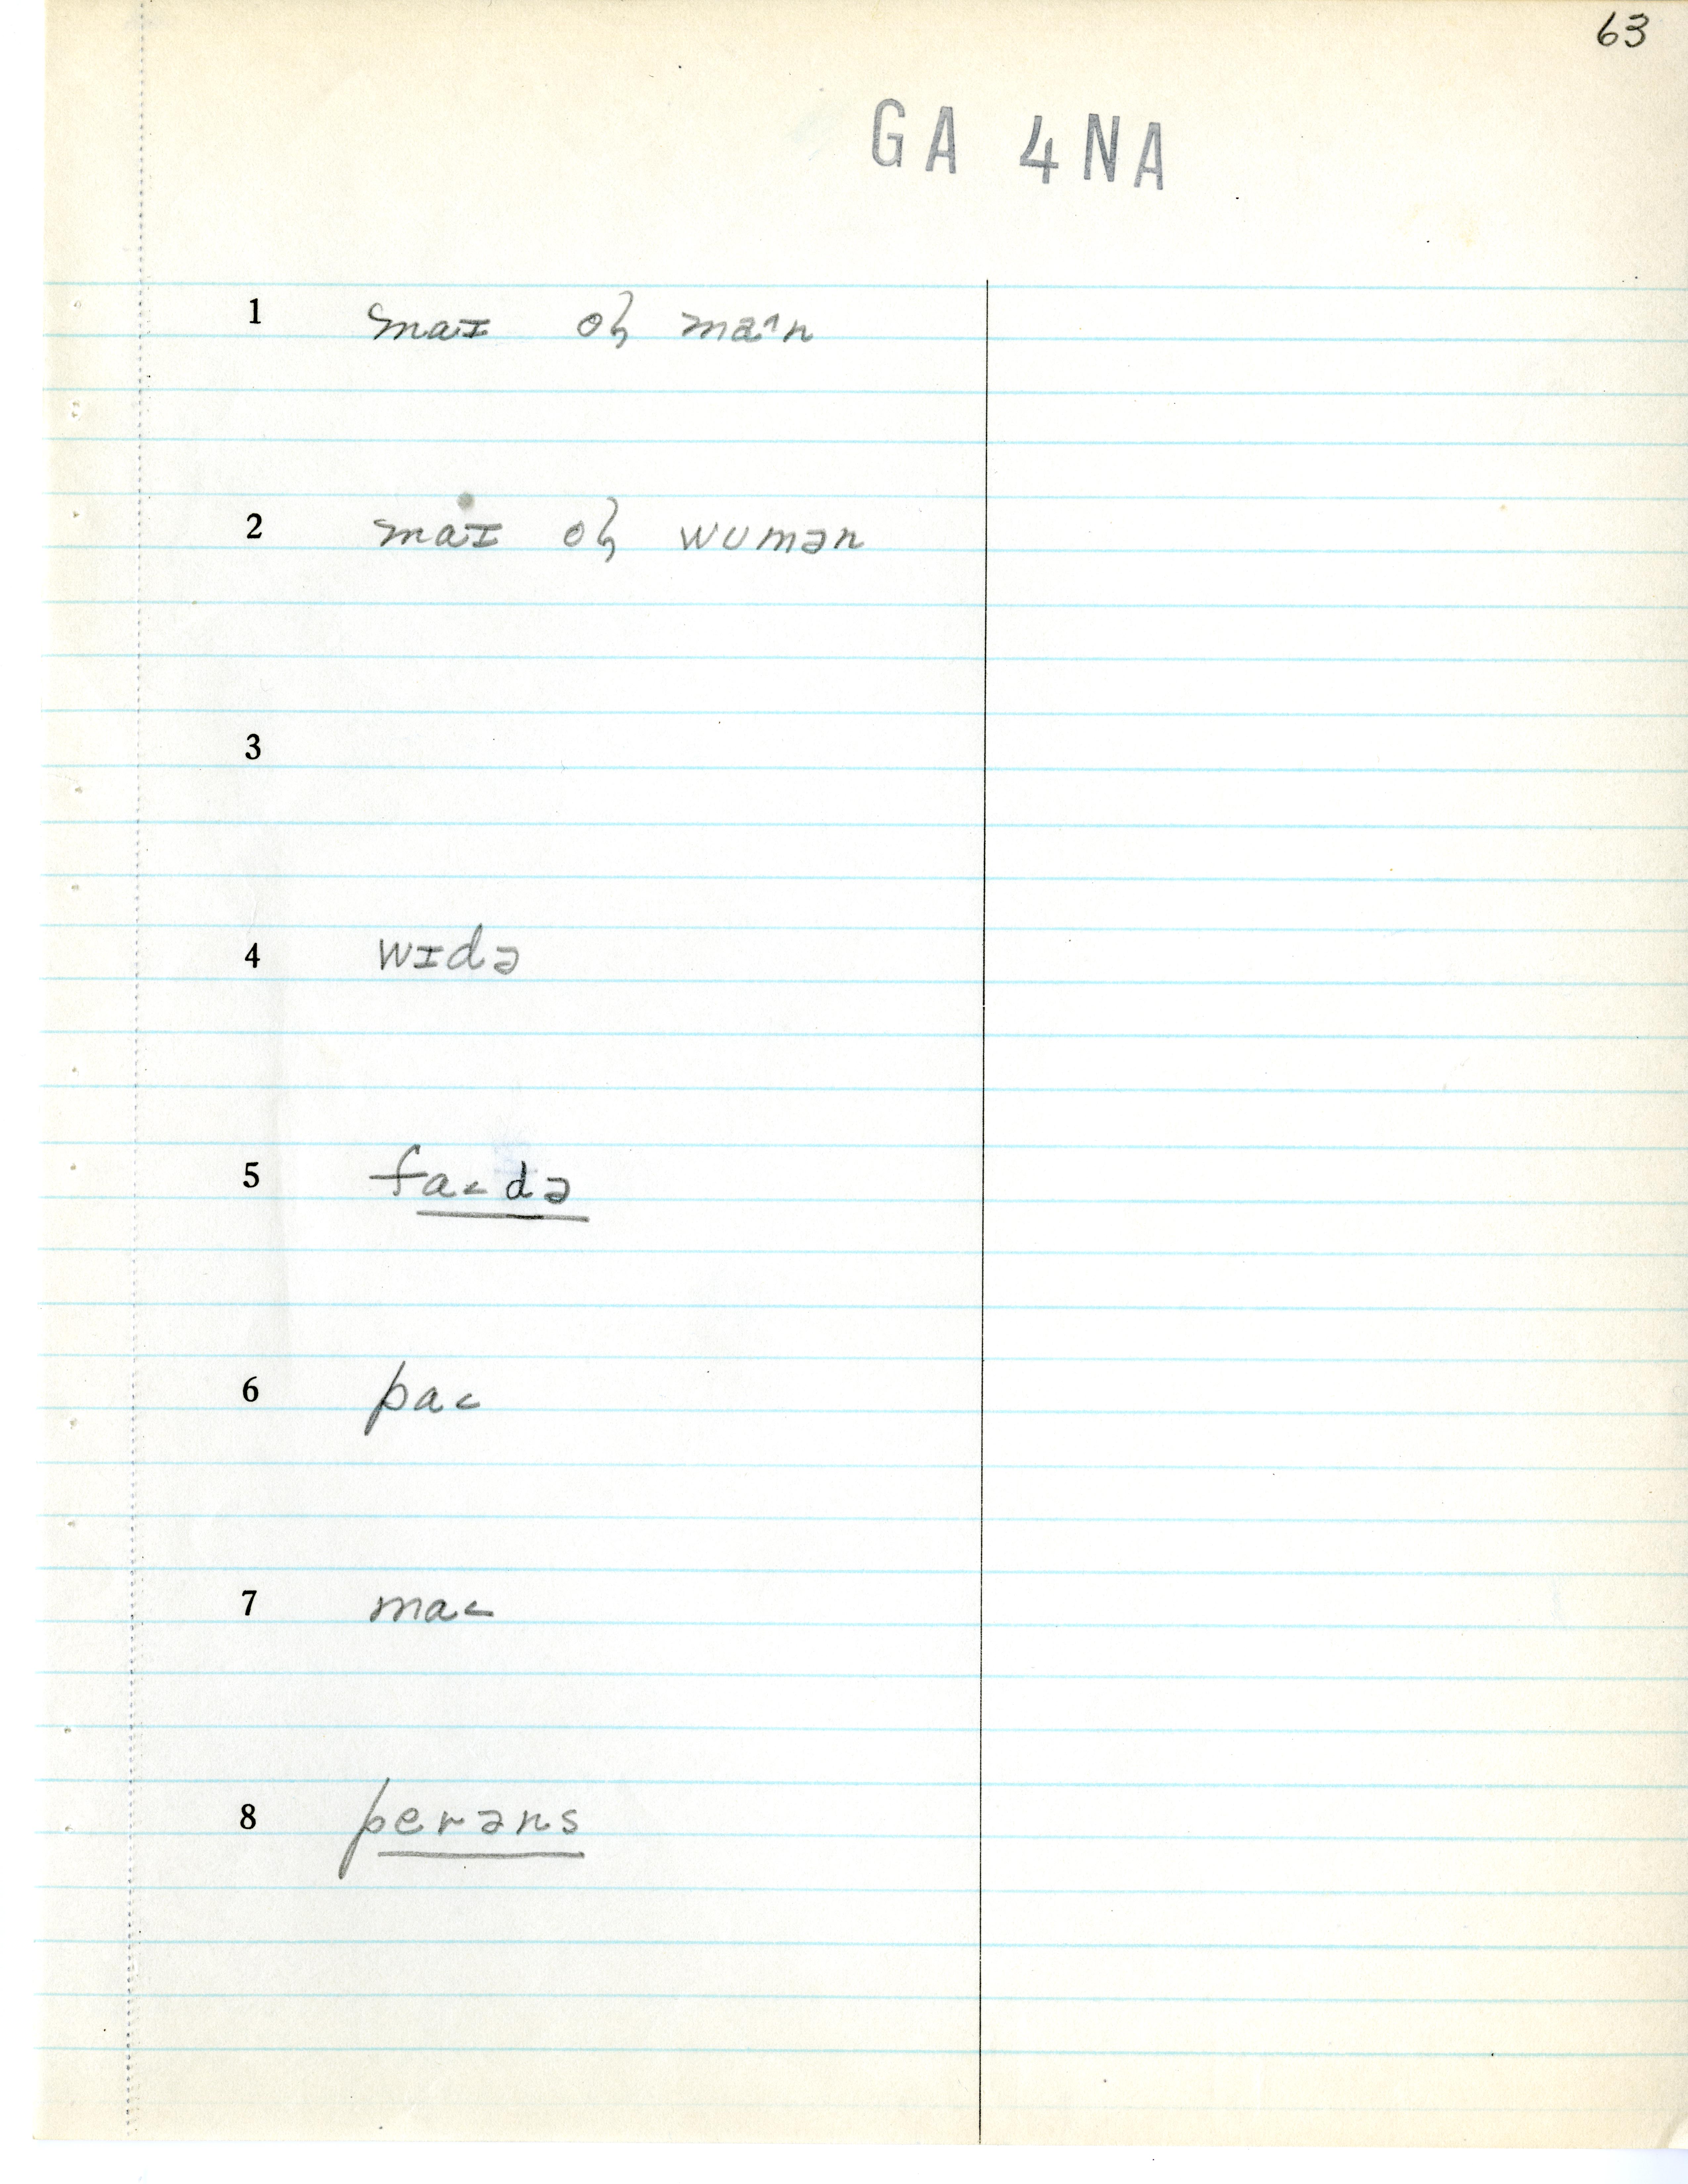 63
GA 4NA
1 maɪ oɫ ma^n
2 maɪ oɫ wumən
3
4 wɪdə
5 fa˂də
6 pa˂
7 ma˂
8 perəns